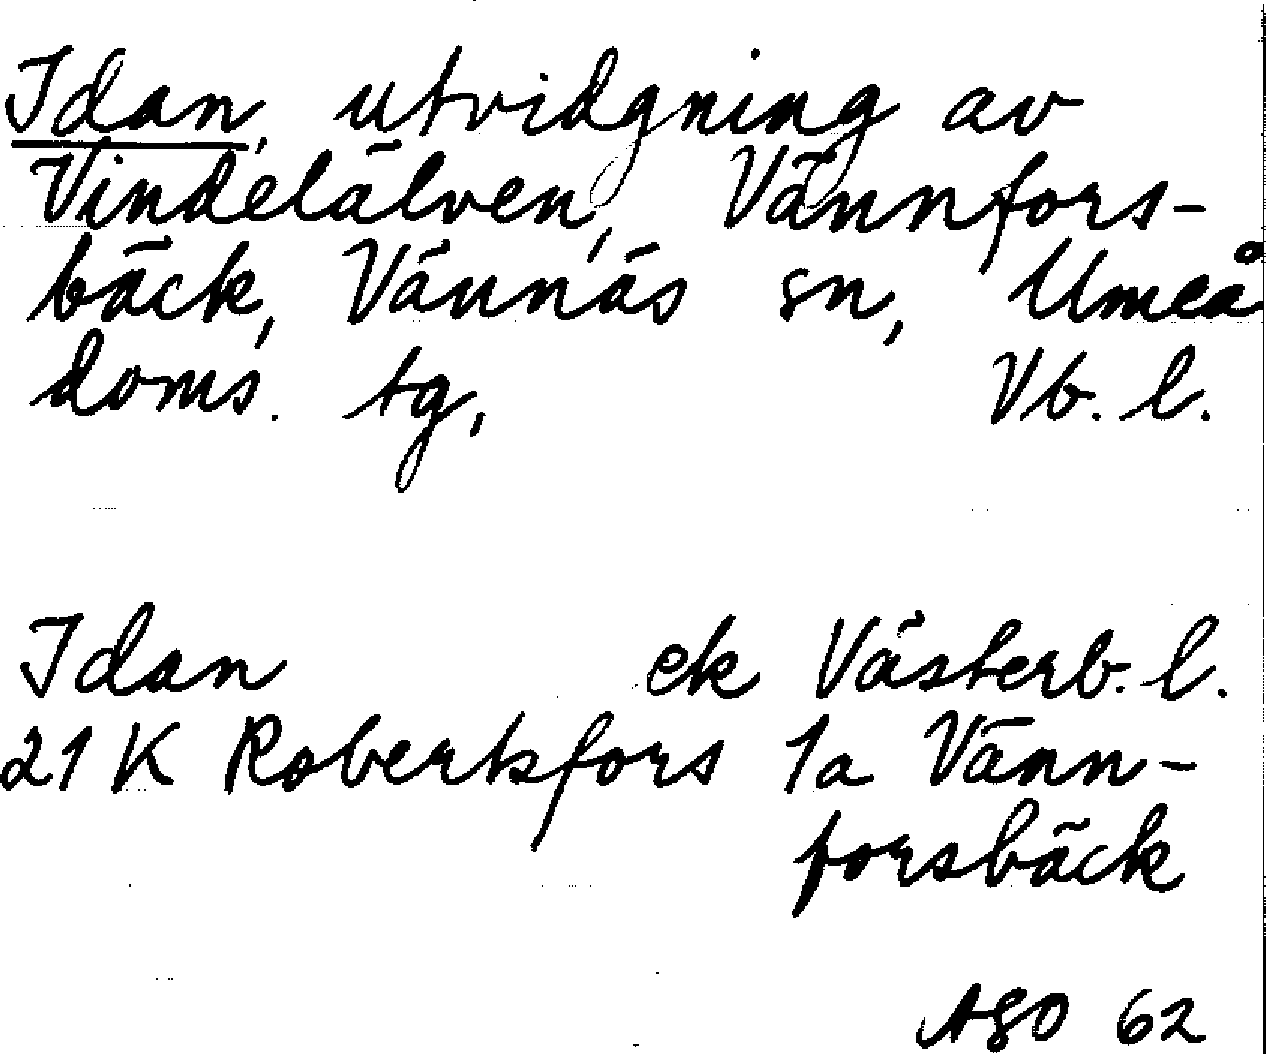 Idan, utvidgning av
Vindelälven, Vännfors-
bäck, Vännäs sn, Umeå
doms. tg, Vb. l.
Idan ek Västerb. l.
21 K Robertsfors 1a Vänn-
forsbäck
ASO 62